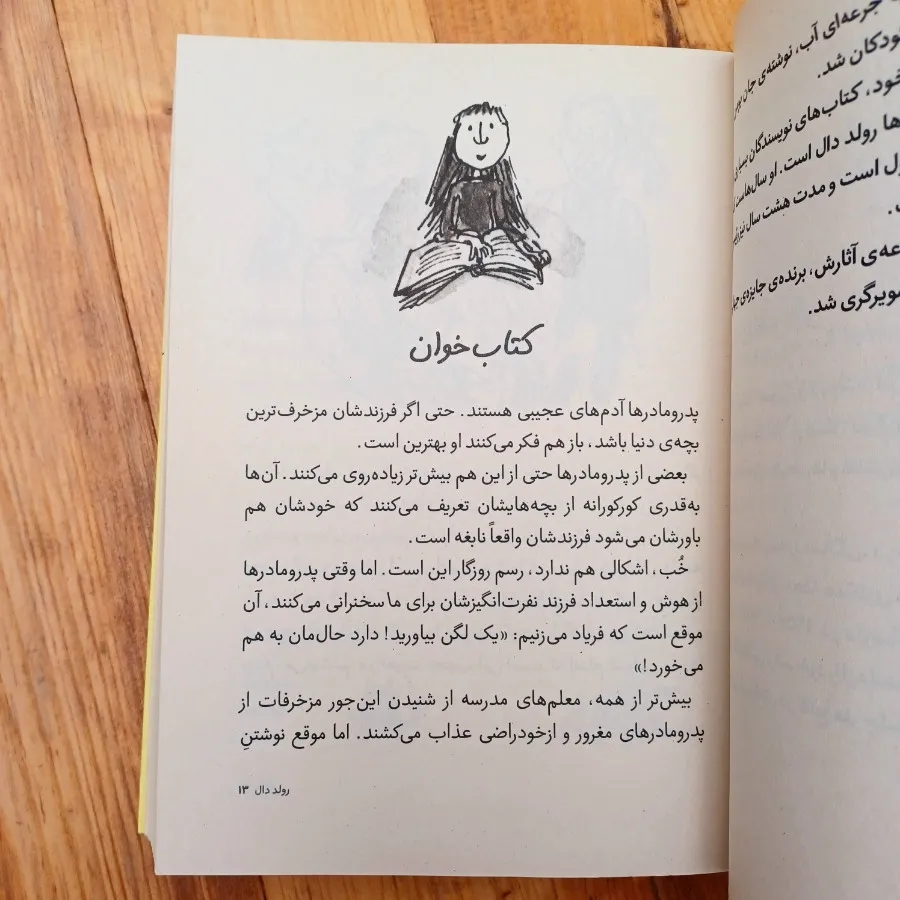 کتاب‌خوان
پدرومادرها آدم‌های عجیبی هستند. حتی اگر فرزندشان مزخرف‌ترین
بچه‌ی دنیا باشد، باز هم فکر می‌کنند او بهترین است.
بعضی از پدرومادرها حتی از این هم بیش‌تر زیاده‌روی می‌کنند. آن‌ها
به‌قدری کورکورانه از بچه‌هایشان تعریف می‌کنند که خودشان هم
باورشان می‌شود فرزندشان واقعاً نابغه است.
خُب، اشکالی هم ندارد، رسم روزگار این است. اما وقتی پدرومادرها
از هوش و استعداد فرزند نفرت‌انگیزشان برای ما سخنرانی می‌کنند، آن
موقع است که فریاد می‌زنیم: «یک لگن بیاورید! دارد حال‌مان به هم
می‌خورد!»
بیش‌تر از همه، معلم‌های مدرسه از شنیدن این‌جور مزخرفات از
پدرومادرهای مغرور و ازخودراضی عذاب می‌کشند. اما موقع نوشتنِ
رولد دال ۱۳
جرعه‌ای آب، نوشته‌ی جان
کودکان شد.
خود، کتاب‌های نویسندگان
ها رولد دال است. او سال‌هاست
ول است و مدت هشت سال نیز
عه‌ی آثارش، برنده‌ی جایزه‌ی
صویرگری شد.